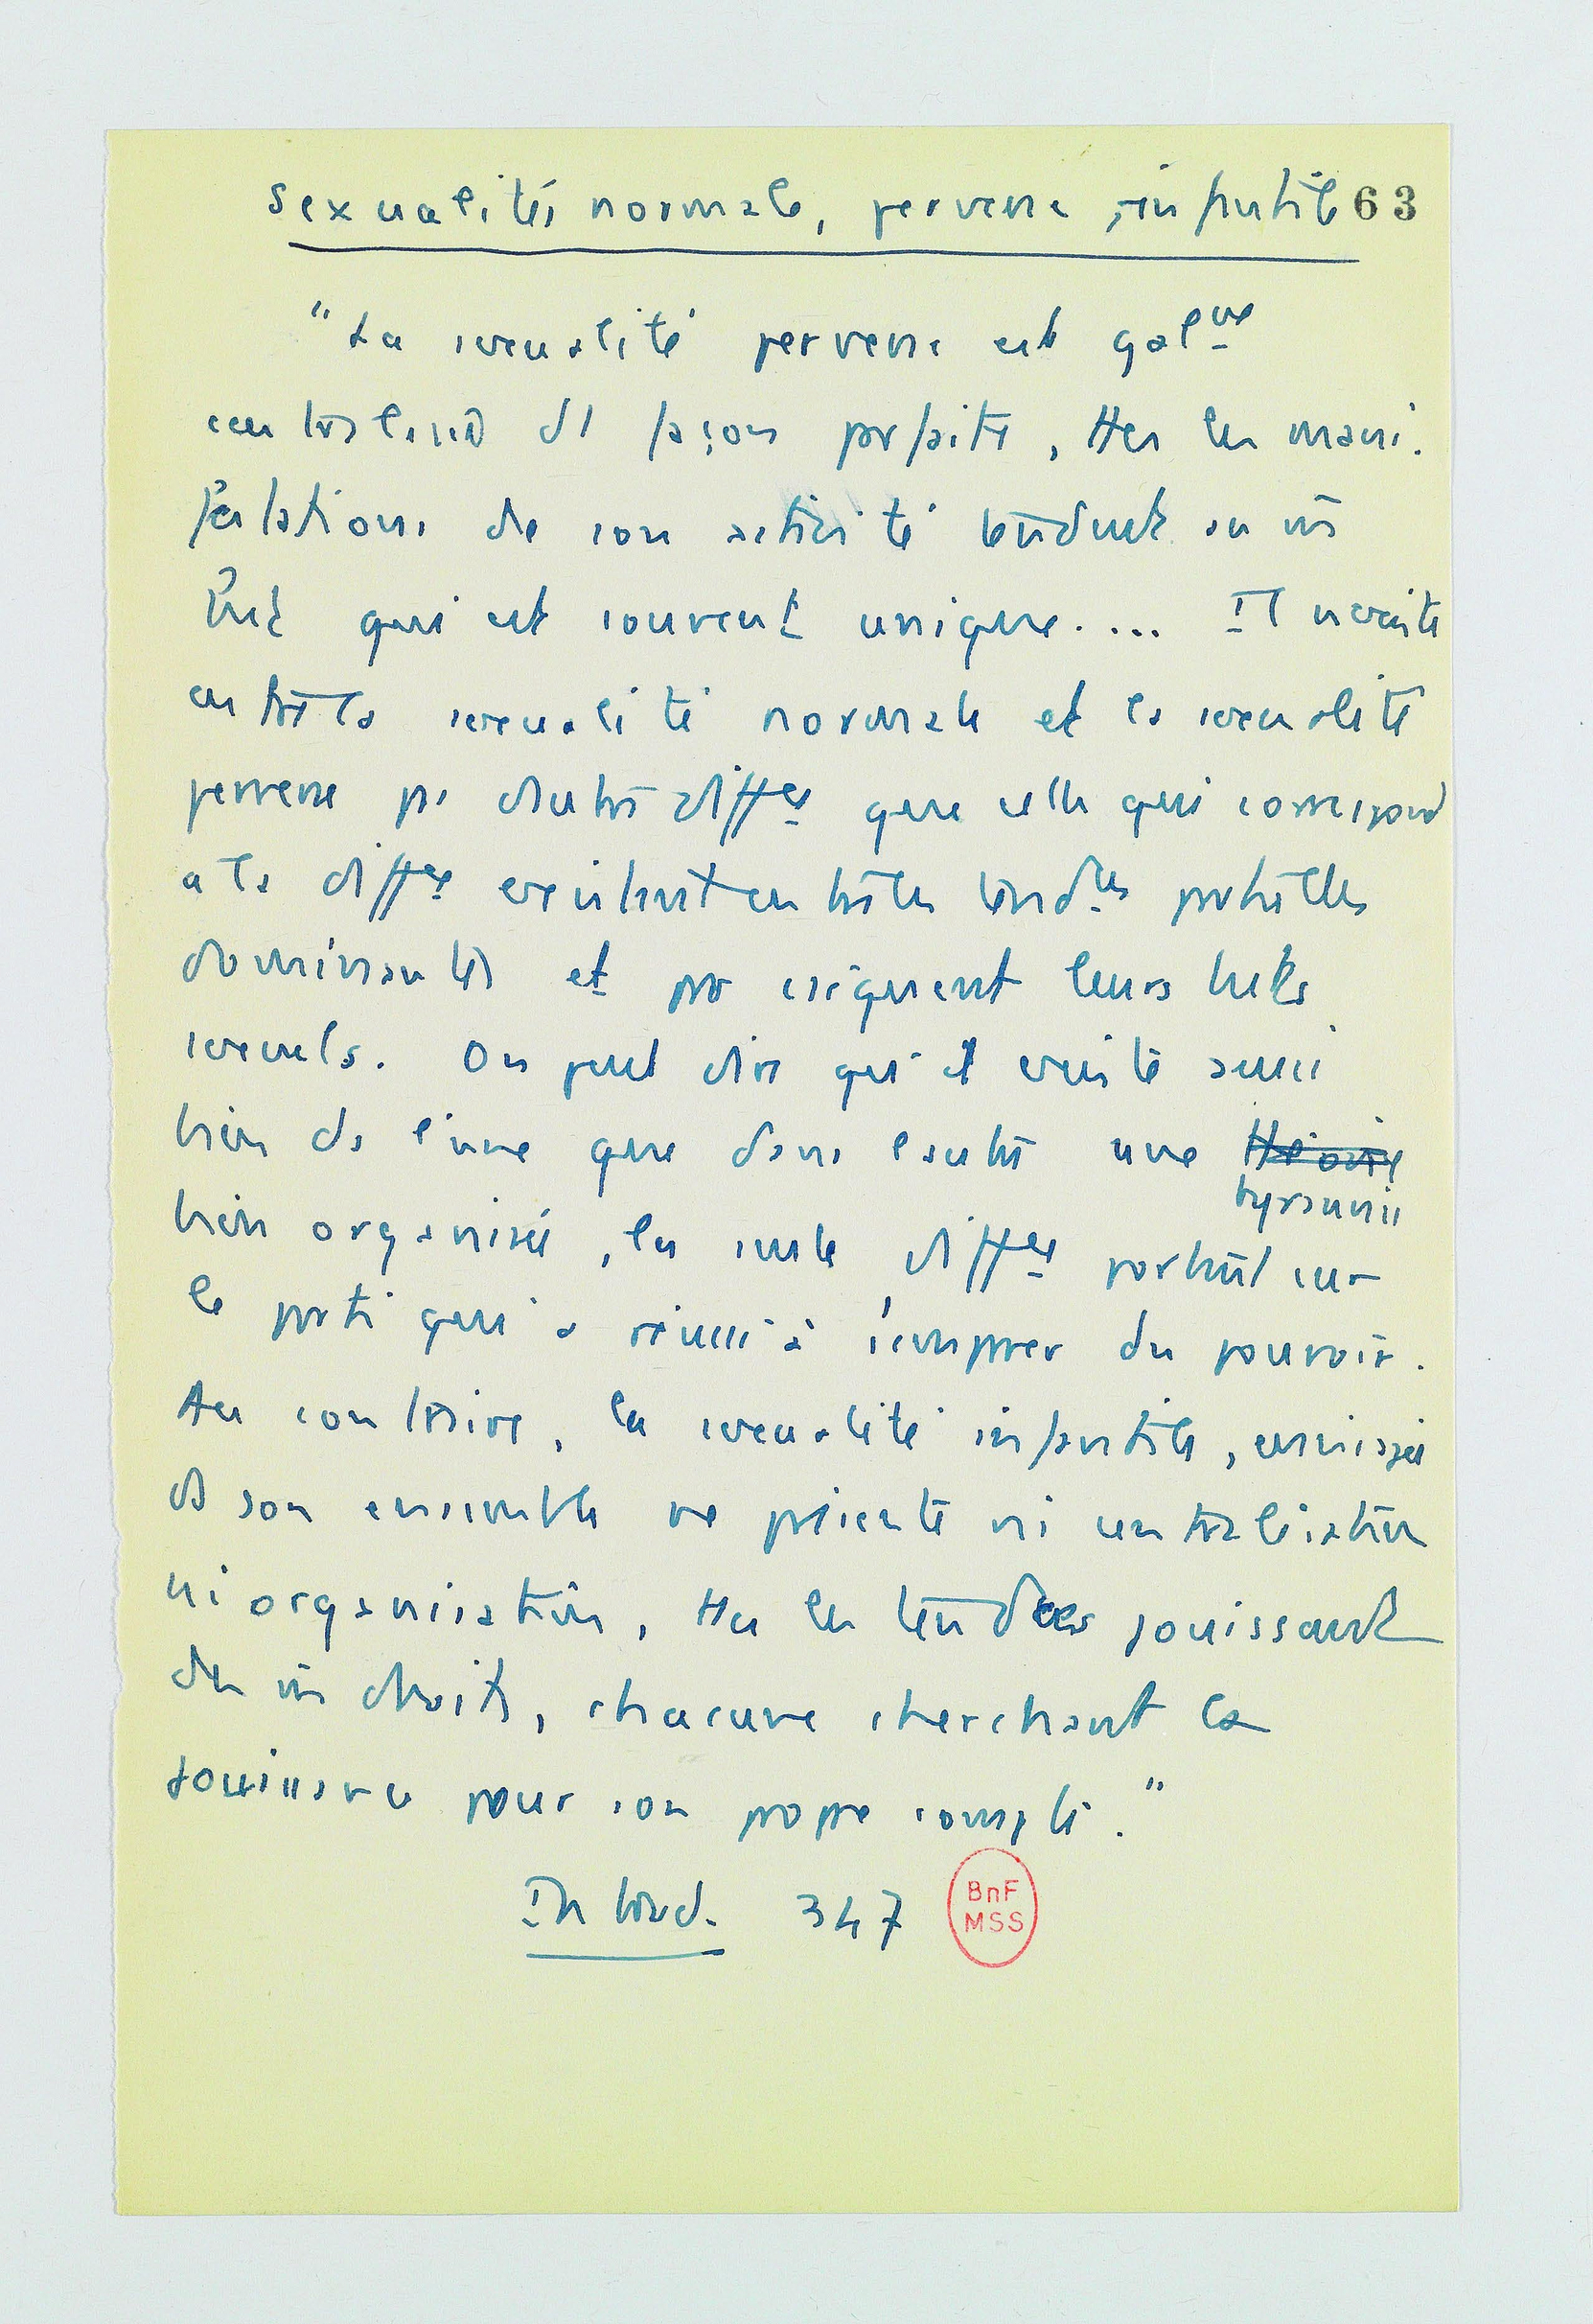 Sexualités normale, perverse, infantile 63
"La sexualité perverse est galᵉᵐᵉ
centralisée de façon parfaite, ttes les mani-
festations de son activité tendent vers un m̂
but qui est souvent unique.... Il n'existe
entre la sexualité normale et la sexualité
perverse pas d'autre diffce que celle qui correspond
à la diffce existant entre les tendces partielles
dominantes et par conséquent leurs buts
sexuels. On peut dire qu'il existe aussi
bien ds l'une que dans l'autre une théorie
tyrannie
bien organisée, la seule diffce portant sur
le parti qui a réussi à s'emparer du pouvoir.
Au contraire, la sexualité infantile, envisagée
ds son ensemble ne présente ni centralisation
ni organisation, ttes les tendces jouissant
des m̂ droits, chacune cherchant la
jouissance pour son propre compte."
Introd. 347
BnF
MSS